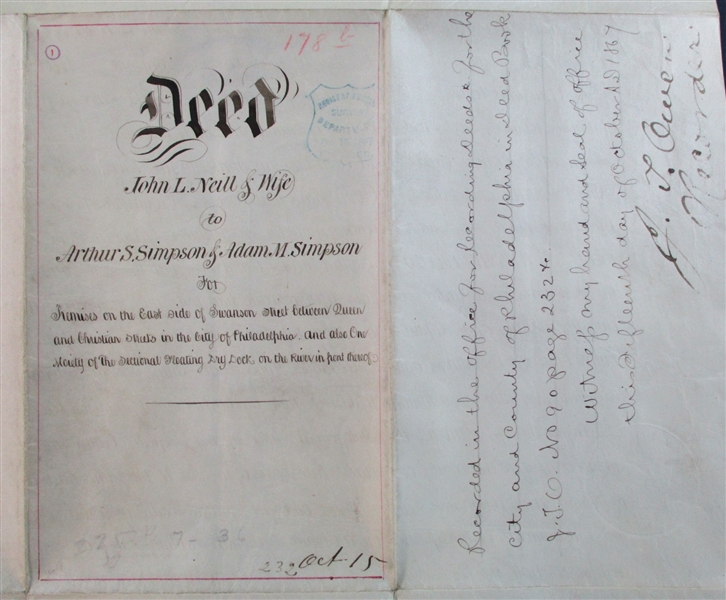 1
178
Deed
John L. Neill & Wife
to
Arthur S. Simpson & Adam M. Simpson
For
Premises on the East side of Swanson Street between Queen
and Christian Streets in the City of Philadelphia, and also One
Moiety of the Sectional Floating Dry Dock, on the River in front thereof.
232 Oct. 15
Recorded in the office for recording Deeds &c for the
City and County of Philadelphia in Deed Book
J.T.O. No 90 page 232 &c.
Witness my hand and seal of office
this fifteenth day of October AD 1867
Recorder